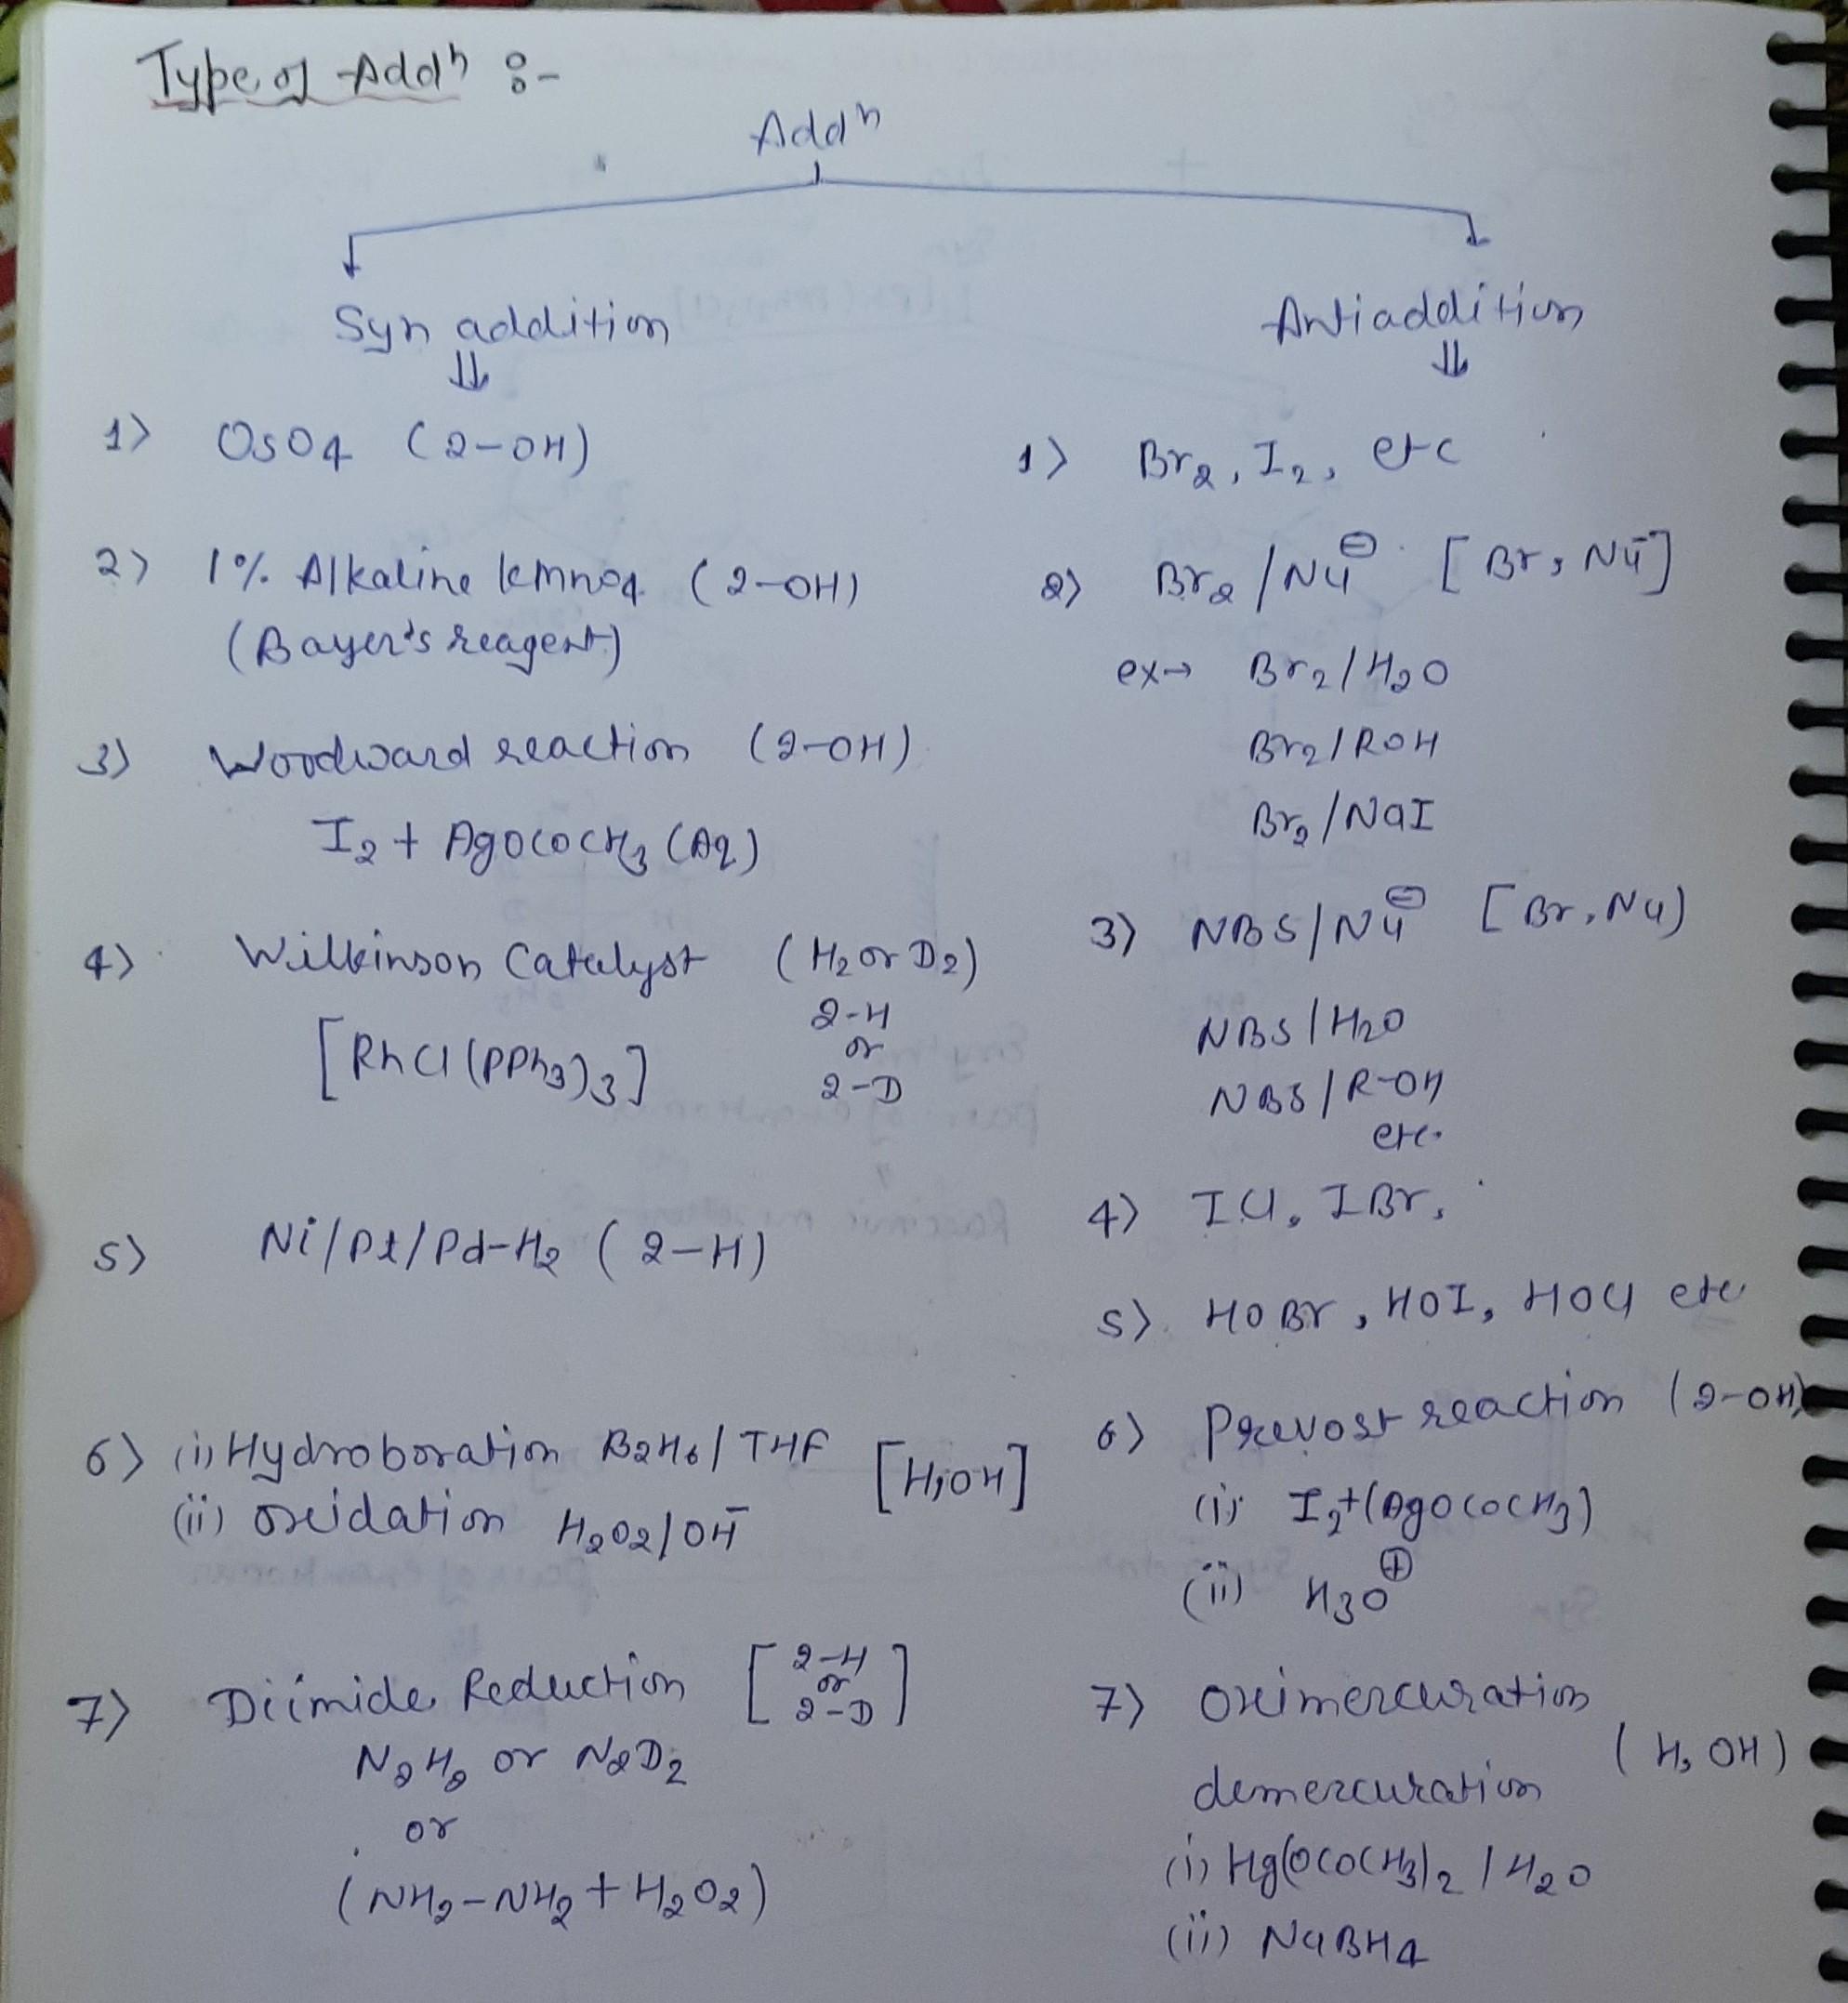 Type of Addⁿ :-
Addⁿ
Syn addition
1) OsO4 (2-OH)
2) 1% Alkaline kmno4 (2-OH)
(Bayer's reagent)
3) Woodward reaction (2-OH)
I2 + AgOCOCH3 (Aq)
4) Wilkinson Catalyst (H2 or D2)
2-H
or
2-D
[RhCl(PPh3)3]
5) Ni/Pt/Pd-H2 (2-H)
6) (i) Hydroboration B2H6/THF [H,OH]
(ii) oxidation H2O2/OH⁻
7) Diimide Reduction [2-H or 2-D]
N2H2 or N2D2
or
(NH2-NH2 + H2O2)
Antiaddition
1) Br2, I2, etc
2) Br2/Nu⊖ [Br, Nu⁻]
ex→ Br2/H2O
Br2/ROH
Br2/NaI
3) NBS/Nu⊖ [Br, Nu)
NBS/H2O
NBS/R-OH
etc.
4) ICl, IBr,
5) HOBr, HOI, HOCl etc
6) Prevost reaction (2-OH)
(i) I2+(AgOCOCH3)
(ii) H3O⊕
7) Oximercuration
demercuration (H, OH)
(i) Hg(OCOCH3)2 / H2O
(ii) NaBH4